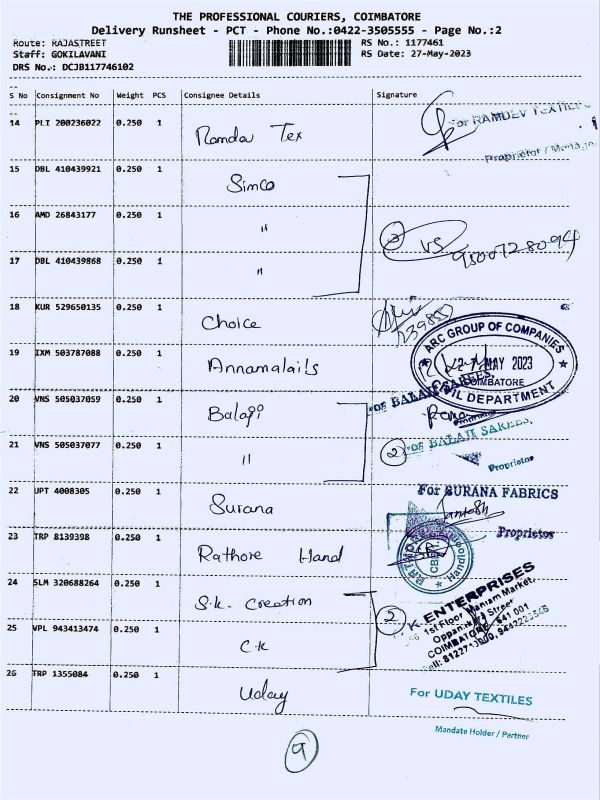 THE PROFESSIONAL COURIERS, COIMBATORE
Delivery Runsheet - PCT - Phone No.:0422-3505555 - Page No.:2
Route: RAJASTREET RS No.: 1177461
Staff: GOKILAVANI RS Date: 27-May-2023
DRS No.: DCJB117746102
S No Consignment No Weight PCS Consignee Details Signature
14 PLT 200236022 0.250 1 Ramdev Tex For RAMDEV TEXTILES
Proprietor / Manager
15 DBL 410439921 0.250 1 Simco
16 AMD 26843177 0.250 1 " 3 VS 9500728094
17 DBL 410439868 0.250 1 "
18 KUR 529650135 0.250 1 Choice
19 IXM 503787088 0.250 1 Annamalails
ARC GROUP OF COMPANIES
27 MAY 2023
COIMBATORE
CIVIL DEPARTMENT
20 VNS 505037059 0.250 1 Balaji For BALAJI SAREES,
21 VNS 505037077 0.250 1 " 2 For BALAJI SAREES,
Proprietor
22 UPT 4008305 0.250 1 Surana For SURANA FABRICS
Proprietor
23 TRP 8139398 0.250 1 Rathore Hand
24 SLM 320688264 0.250 1 S.K. Creation
25 VPL 943413474 0.250 1 C.K 2
K ENTERPRISES
1st Floor, Maniam Market,
Oppanakara Street
COIMBATORE - 641 001
26 TRP 1355084 0.250 1 Uday For UDAY TEXTILES
Mandate Holder / Partner
9